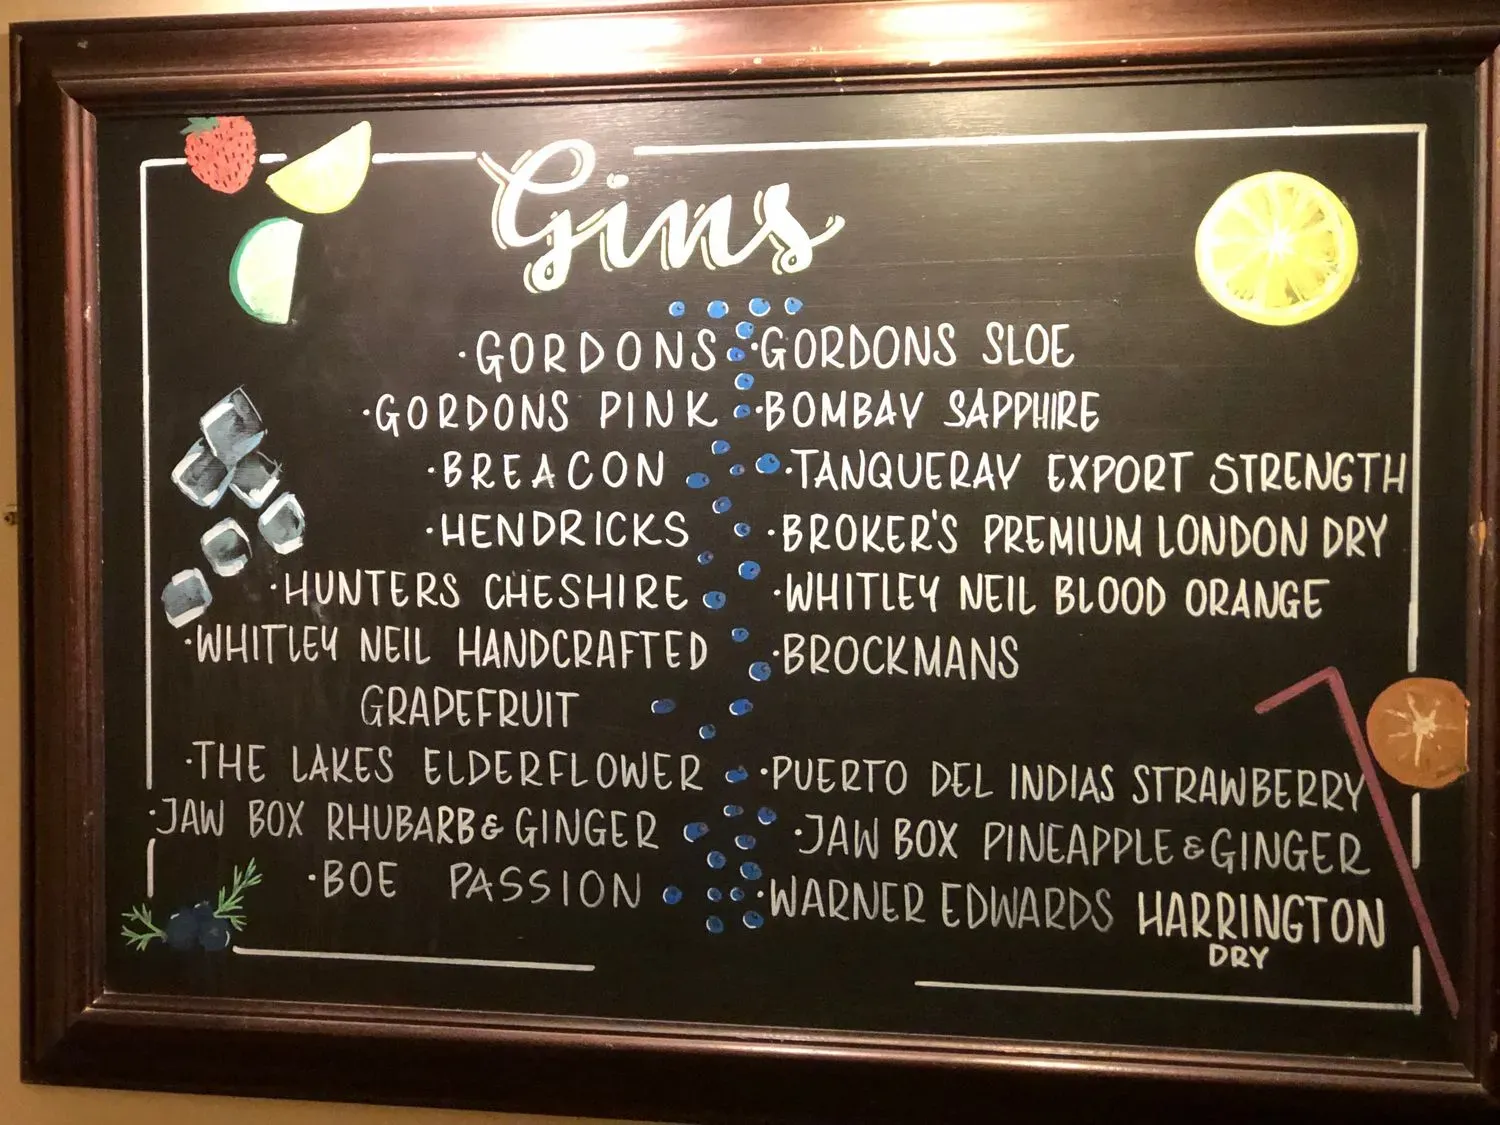 Gins
·GORDONS
·GORDONS PINK
·BREACON
·HENDRICKS
·HUNTERS CHESHIRE
·WHITLEY NEIL HANDCRAFTED
GRAPEFRUIT
·THE LAKES ELDERFLOWER
·JAW BOX RHUBARB & GINGER
·BOE PASSION
·GORDONS SLOE
·BOMBAY SAPPHIRE
·TANQUERAY EXPORT STRENGTH
·BROKER'S PREMIUM LONDON DRY
·WHITLEY NEIL BLOOD ORANGE
·BROCKMANS
·PUERTO DEL INDIAS STRAWBERRY
·JAW BOX PINEAPPLE & GINGER
·WARNER EDWARDS HARRINGTON
DRY